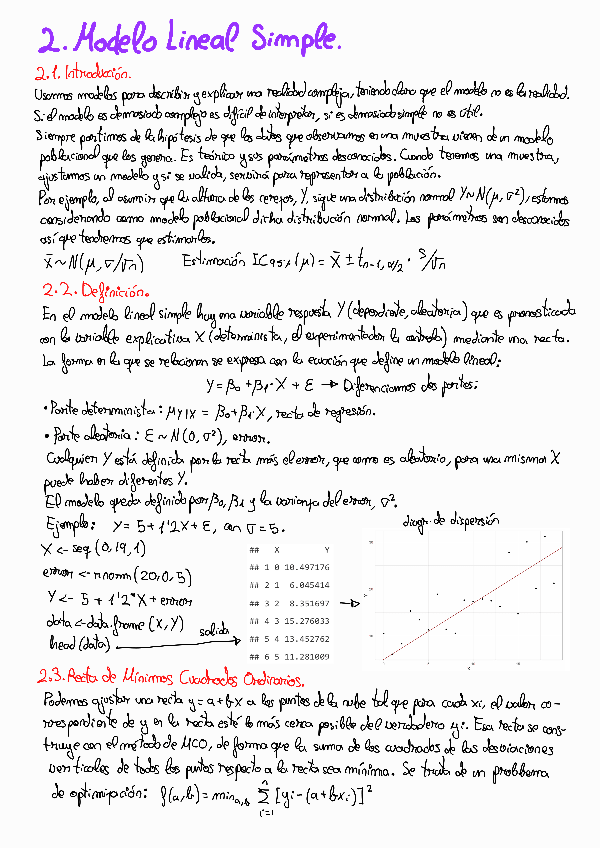 2. Modelo Lineal Simple.
2.1. Introducción.
Usamos modelos para describir y explicar una realidad compleja, teniendo claro que el modelo no es la realidad.
Si el modelo es demasiado complejo es difícil de interpretar, si es demasiado simple no es útil.
Siempre partimos de la hipótesis de que los datos que observamos en una muestra vienen de un modelo
poblacional que los genera. Es teórico y sus parámetros desconocidos. Cuando tenemos una muestra,
ajustamos un modelo y si se valida, servirá para representar a la población.
Por ejemplo, al asumir que la altura de los cerezos, Y, sigue una distribución normal Y~N(μ, σ²), estamos
considerando como modelo poblacional dicha distribución normal. Los parámetros son desconocidos
así que tendremos que estimarlos.
X̄ ~ N(μ, σ/√n) Estimación IC95%(μ) = X̄ ± tn-1, α/2 · S/√n
2.2. Definición.
En el modelo lineal simple hay una variable respuesta Y (dependiente, aleatoria) que es pronosticada
con la variable explicativa X (determinista, el experimentador la controla) mediante una recta.
La forma en la que se relacionan se expresa con la ecuación que define un modelo lineal:
Y = β0 + β1·X + ε → Diferenciamos dos partes:
• Parte determinista: μY|X = β0+β1·X, recta de regresión.
• Parte aleatoria: ε ~ N(0, σ²), error.
Cualquier Y está definida por la recta más el error, que como es aleatorio, para una misma X
puede haber diferentes Y.
El modelo queda definido por β0, β1 y la varianza del error, σ².
Ejemplo: Y = 5 + 1'2X + ε, con σ = 5.
diagr. de dispersión
X <- seq(0,19,1)
error <- rnorm(20,0,5)
Y <- 5 + 1'2*X + error
data <- data.frame(X,Y)
head(data) salida
## X Y
## 1 0 10.497176
## 2 1 6.045414
## 3 2 8.351697
## 4 3 15.276033
## 5 4 13.452762
## 6 5 11.281009
2.3. Recta de Mínimos Cuadrados Ordinarios.
Podemos ajustar una recta y = a + b·x a los puntos de la nube tal que para cada xi, el valor co-
rrespondiente de y en la recta esté lo más cerca posible del verdadero yi. Esa recta se cons-
truye con el método de MCO, de forma que la suma de los cuadrados de las desviaciones
verticales de todos los puntos respecto a la recta sea mínima. Se trata de un problema
de optimización: f(a,b) = mina,b Σⁿi=1 [yi - (a+bxi)]²